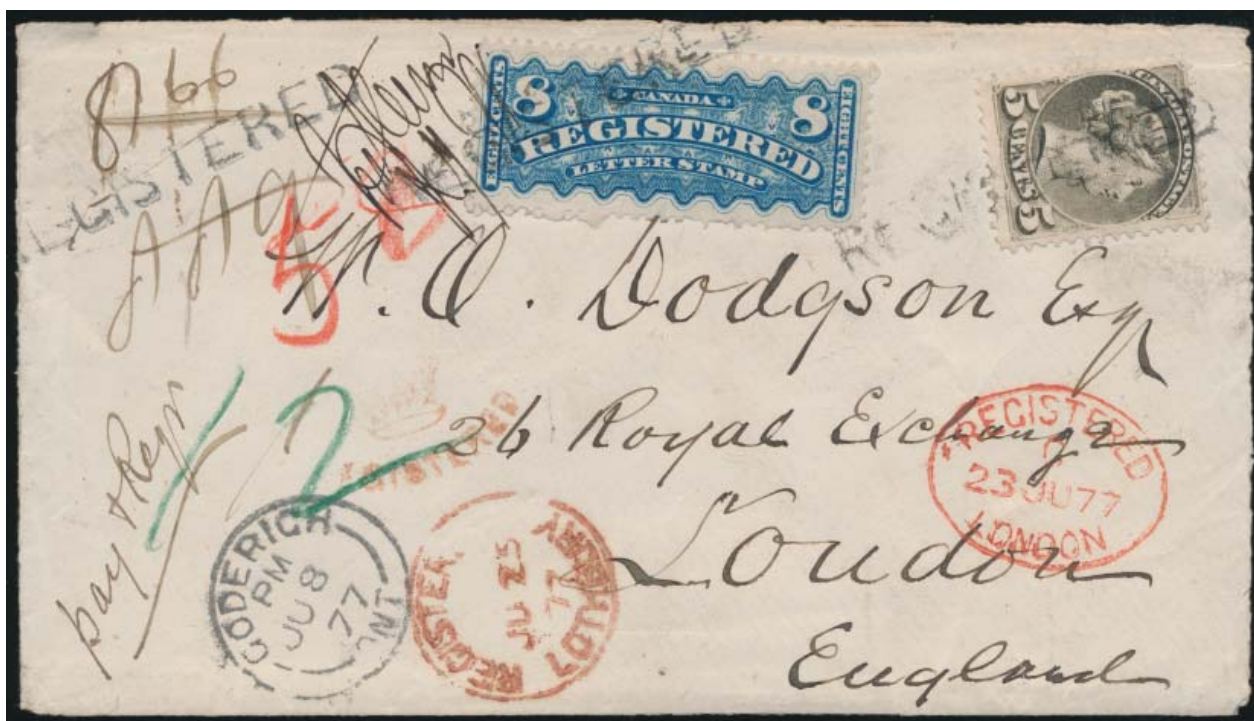 866
REGISTERED
EIGHT CENTS
8 CANADA 8
REGISTERED
LETTER STAMP
EIGHT CENTS
REGISTERED
5 CENTS 5
5
W. O. Dodgson Esq
26 Royal Exchange
London
England
pay & Regr
12
REGISTERED
REGISTERED
23 JU 77
LONDON
GODERICH
PM
JU 8
77
ONT
REGISTER
JU 23
77
LOTHBURY